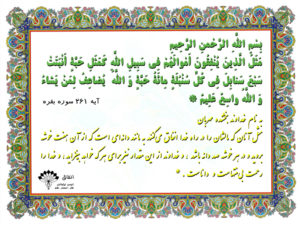 بِسْمِ اللَّهِ الرَّحْمنِ الرَّحِيمِ
مَثَلُ الَّذِينَ يُنْفِقُونَ أَمْوالَهُمْ فِي سَبِيلِ اللَّهِ كَمَثَلِ حَبَّةٍ أَنْبَتَتْ
سَبْعَ سَنابِلَ فِي كُلِّ سُنْبُلَةٍ مِائَةُ حَبَّةٍ وَ اللَّهُ يُضاعِفُ لِمَنْ يَشاءُ
وَ اللَّهُ واسِعٌ عَلِيمٌ
آیه ۲۶۱ سوره بقره
به نام خداوند بخشنده مهربان
مثل آنان که مالشان را در راه خدا انفاق می‌کنند به مانند دانه‌ای است که از آن هفت خوشه
بروید و در هر خوشه صد دانه باشد و خداوند از این مقدار نیز برای هر که خواهد بیفزاید، و خدا را
رحمت بی‌منتهاست و داناست.
انفاق